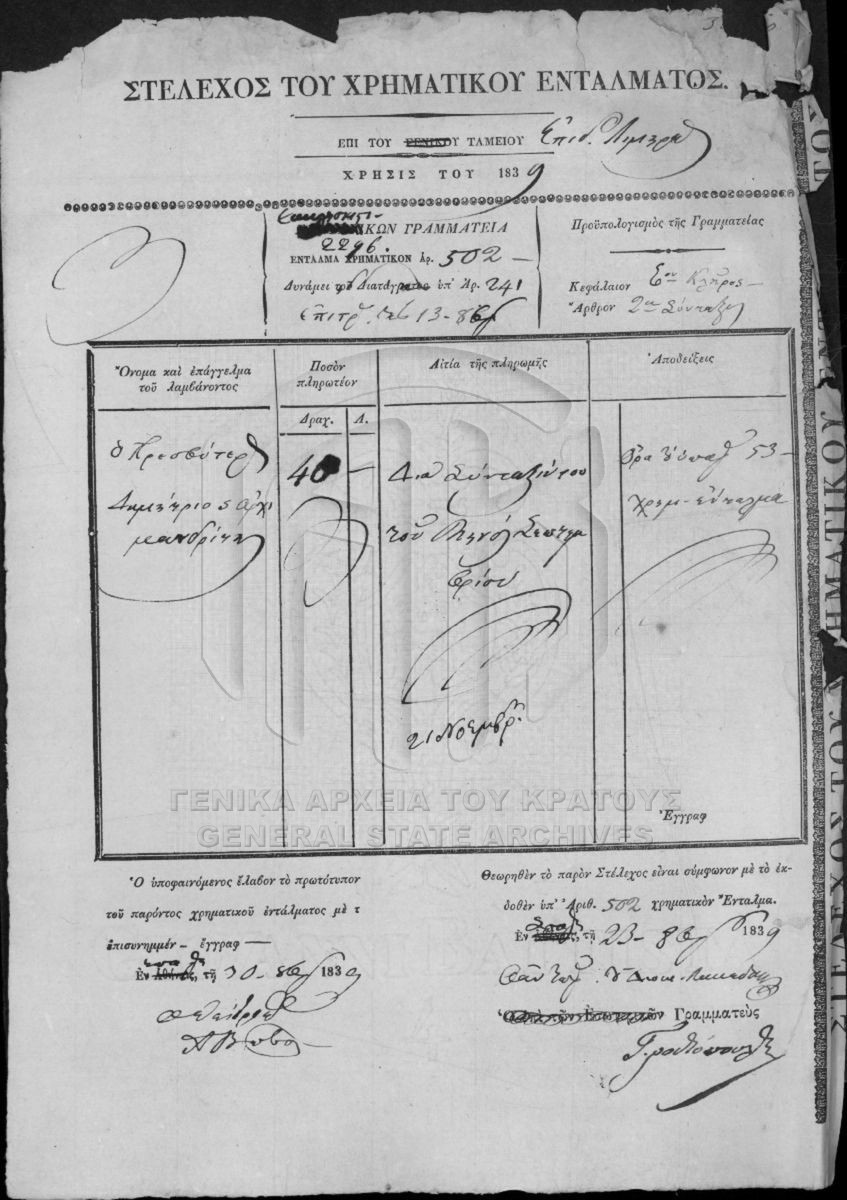 ΣΤΕΛΕΧΟΣ ΤΟΥ ΧΡΗΜΑΤΙΚΟΥ ΕΝΤΑΛΜΑΤΟΣ.
ΕΠΙ ΤΟΥ ΓΕΝΙΚΟΥ ΤΑΜΕΙΟΥ Επιδ. Λιμηρά
ΧΡΗΣΙΣ ΤΟΥ 1839
ΙΚΩΝ ΓΡΑΜΜΑΤΕΙΑ
2296.
ΕΝΤΑΛΜΑ ΧΡΗΜΑΤΙΚΟΝ Ἀρ. 502 —
Δυνάμει τοῦ Διατάγματος ὑπ' Ἀρ. 241
13 - 8
Προϋπολογισμὸς τῆς Γραμματείας
Κεφάλαιον Κλῆρος —
Ἄρθρον 2
Ὄνομα καὶ ἐπάγγελμα
τοῦ λαμβάνοντος
Ποσὸν
πληρωτέον
Αἰτία τῆς πληρωμῆς
Ἀποδείξεις
Δραχ.
Λ.
ὁ Πρεσβύτερ
Δημήτριος Ἀρχι
μανδρίτη
40 —
Διὰ Σύνταξίν του
τοῦ Μηνὸς Σεπτεμ
βρίου
21 Νοεμβρ.
Ὅρα 53 —
χρημ. ἔνταλμα
Ἐγγραφ
ΓΕΝΙΚΑ ΑΡΧΕΙΑ ΤΟΥ ΚΡΑΤΟΥΣ
GENERAL STATE ARCHIVES
Ὁ ὑποφαινόμενος ἔλαβον τὸ πρωτότυπον
τοῦ παρόντος χρηματικοῦ ἐντάλματος μὲ τ
ἐπισυνημμέν - ἔγγραφ —
Ἐν Ἀθήναις, τῇ 30 - 8 1839
Θεωρηθὲν τὸ παρὸν Στέλεχος εἶναι σύμφωνον μὲ τὸ ἐκ-
δοθὲν ὑπ' Ἀριθ. 502 χρηματικὸν Ἔνταλμα.
Ἐν Ἀθήναις, τῇ 23 - 8 1839
Ὁ ἐπὶ τῶν Ἐσωτερικῶν Γραμματεὺς
ΣΤΕΛΕΧΟΣ ΤΟΥ ΧΡΗΜΑΤΙΚΟΥ ΕΝΤ